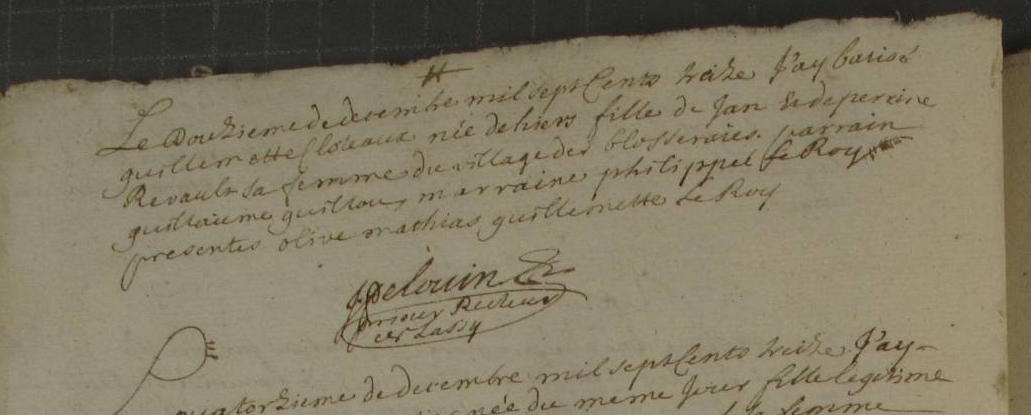 Le Douzieme de decembre mil sept Cents treize J'ay batisé
guillemette Cloteaux née de hiers fille de Jan & de perrine
Revault sa femme du village des blosseraies. parrain
guillaume guillou, marraine philippes Le Roy
presentes olive mathias guillemette Le Roy
Delouin
prieur Recteur
de Lassy
quatorzieme de decembre mil sept Cents treize J'ay
née du meme Jour fille legitime
femme